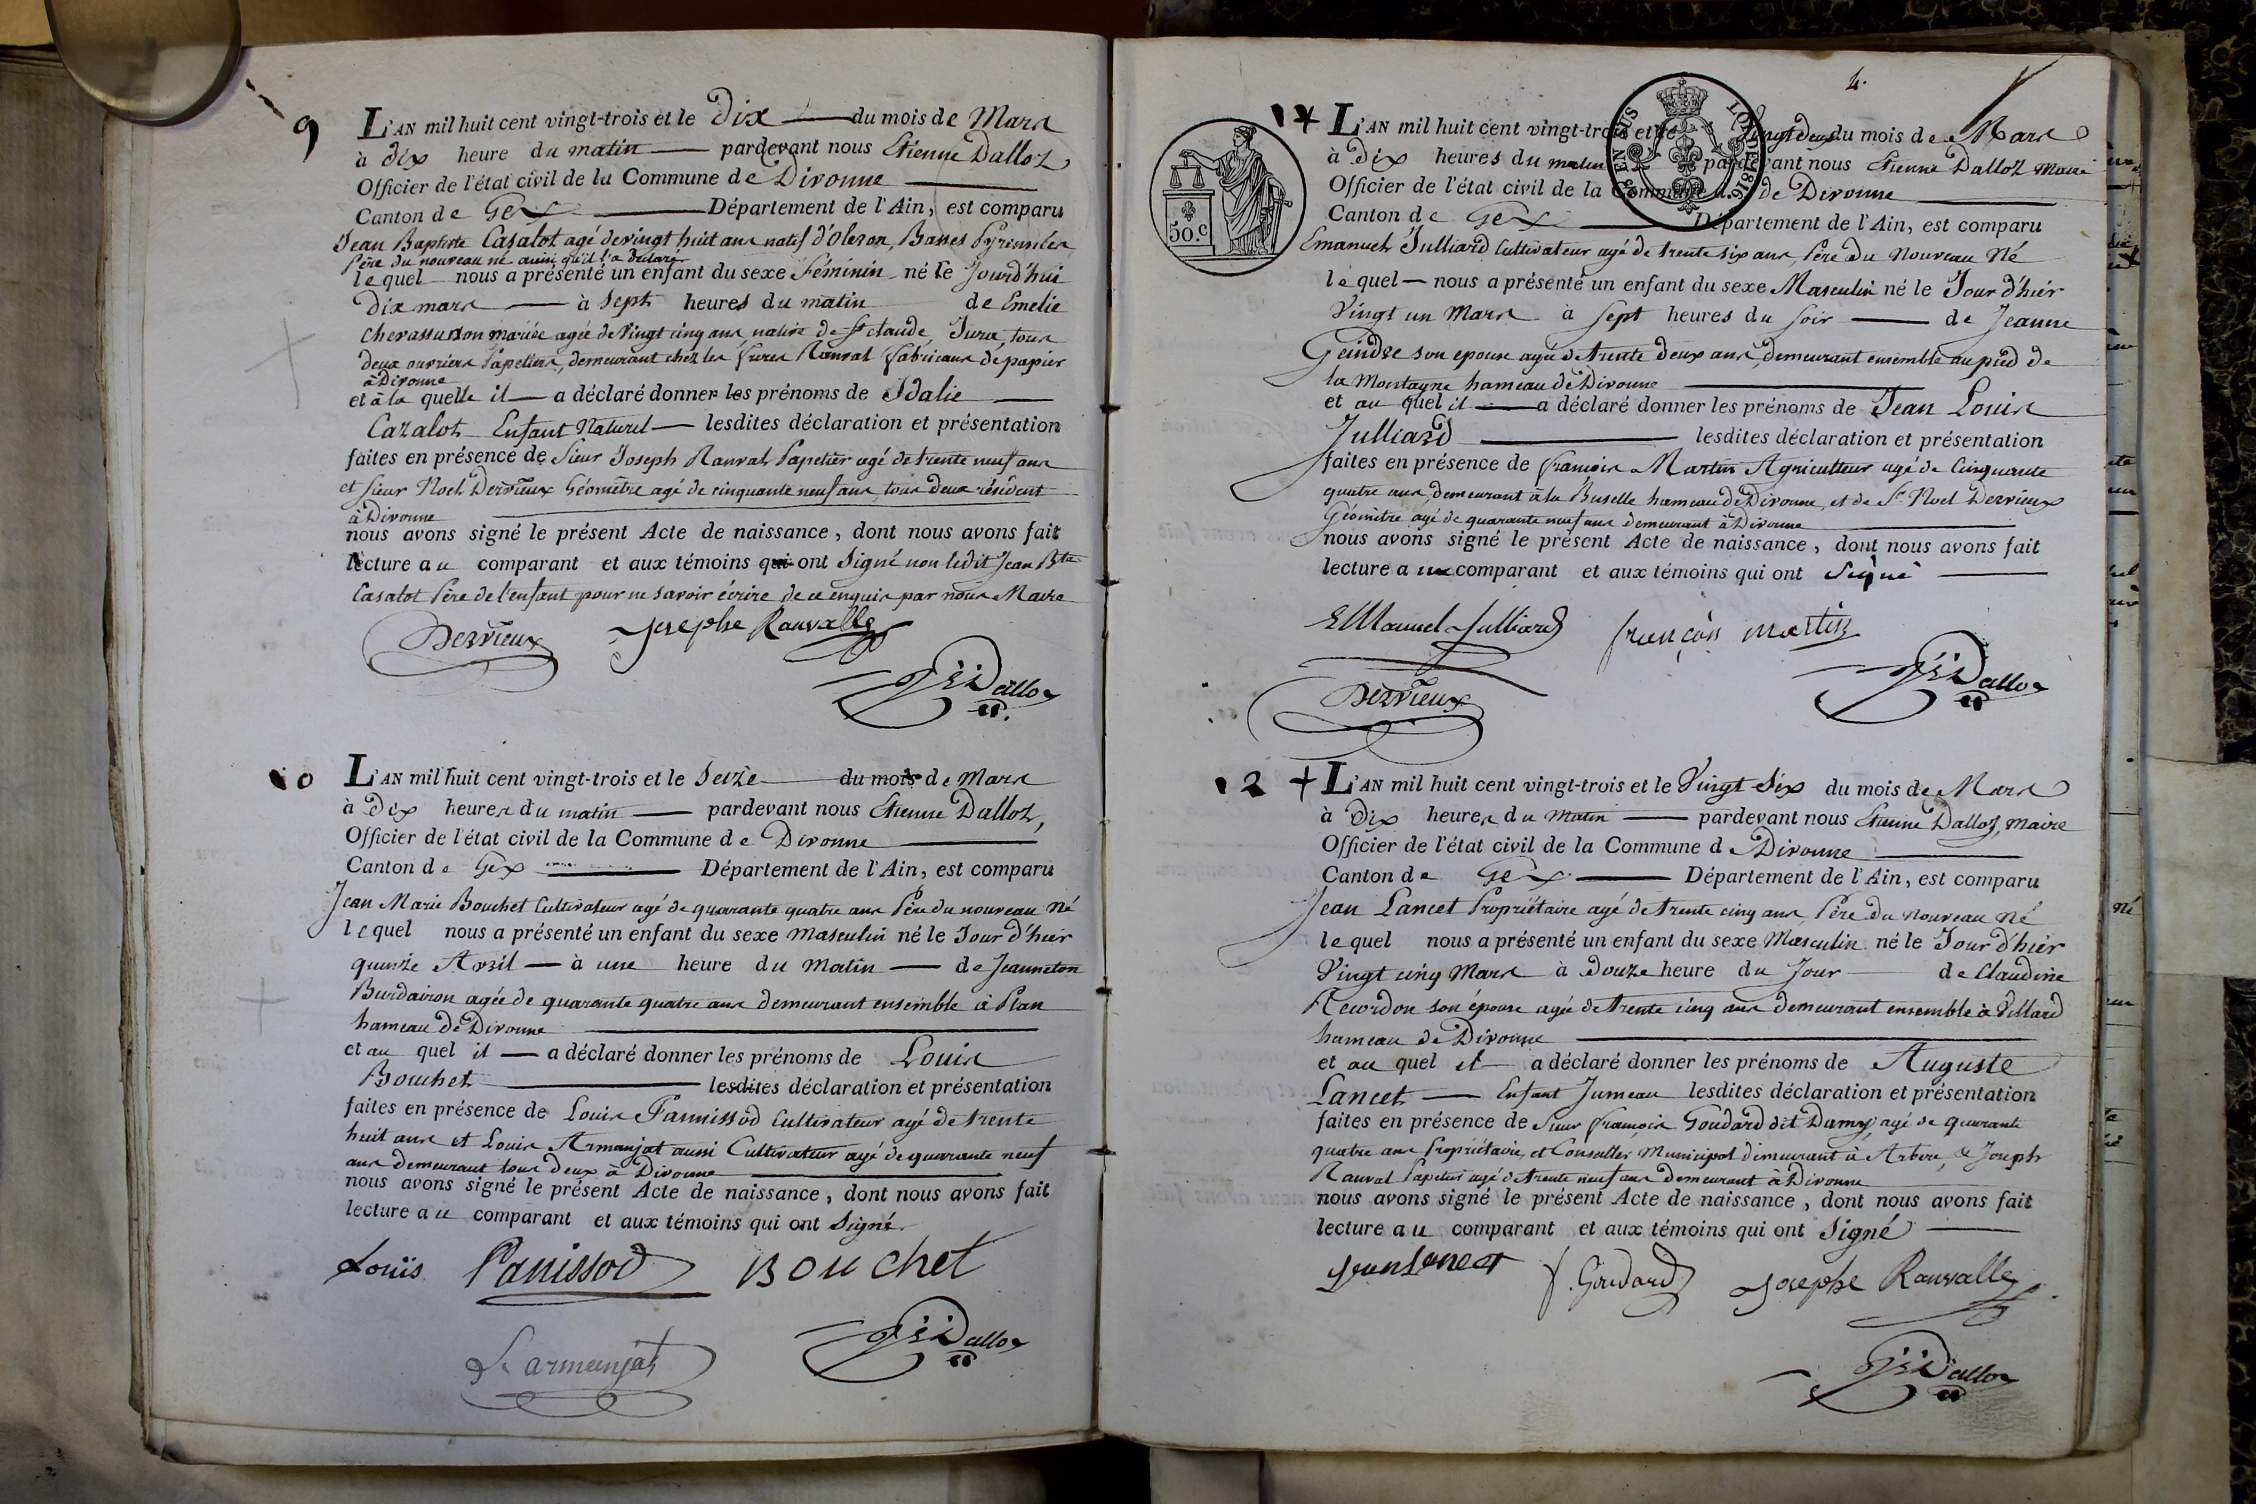 9
L'AN mil huit cent vingt-trois et le Dix du mois de Mars
à dix heure du matin pardevant nous Etienne Dalloz
Officier de l'état civil de la Commune de Divonne
Canton de Gex Département de l'Ain, est comparu
Jean Baptiste Casalot agé de vingt huit ans natif d'Oleron, Basses Pyrennées
Père du nouveau né ainsi qu'il l'a déclaré
lequel nous a présenté un enfant du sexe féminin né le Jourd'hui
dix mars à sept heures du matin de Emelie
Chevassu non mariée agée de vingt cinq ans native de St claude, Jura, tous
deux ouvriers Papetiers, demeurant chez les frères Ranval fabricans de papier
à Divonne
et à la quelle il a déclaré donner les prénoms de Idalie
Cazalot Enfant Naturel lesdites déclaration et présentation
faites en présence de Sieur Joseph Ranval Papetier agé de trente neuf ans
et Sieur Noel Dervieux Géomètre agé de cinquante neuf ans, tous deux résident
à Divonne
nous avons signé le présent Acte de naissance, dont nous avons fait
lecture au comparant et aux témoins qui ont Signé non ledit Jean Bte
Casalot Père de l'enfant pour ne savoir écrire de ce enquis par nous Maire
Dervieux Josephe Ranvalle
Dalloz
10
L'AN mil huit cent vingt-trois et le Seize du mois de Mars
à Dix heures du matin pardevant nous Etienne Dalloz,
Officier de l'état civil de la Commune de Divonne
Canton de Gex Département de l'Ain, est comparu
Jean Marie Bouchet Cultivateur agé de quarante quatre ans Père du nouveau Né
lequel nous a présenté un enfant du sexe masculin né le Jour d'hier
quinze Avril à une heure du Matin de Jeanneton
Burdairon agée de quarante quatre ans demeurant ensemble à Plan
hameau de Divonne
et au quel il a déclaré donner les prénoms de Louis
Bouchet lesdites déclaration et présentation
faites en présence de Louis Pannissod Cultivateur agé de trente
huit ans et Louis Armanjat aussi Cultivateur agé de quarante neuf
ans demeurant tous deux à Divonne
nous avons signé le présent Acte de naissance, dont nous avons fait
lecture au comparant et aux témoins qui ont Signé.
Louis Panissod Bouchet
Dalloz
L armanjat
4.
50.C
LOI DE 1816
L'AN mil huit cent vingt-trois et le Vingt deux du mois de Mars
à Dix heures du matin pardevant nous Etienne Dalloz Maire
Officier de l'état civil de la Commune de Divonne
Canton de Gex Département de l'Ain, est comparu
Emanuel Julliard Cultivateur agé de trente six ans, Père du Nouveau Né
lequel nous a présenté un enfant du sexe Masculin né le Jour d'hier
Vingt un Mars à sept heures du soir de Jeanne
Geindre son epouse agée de trente deux ans, demeurant ensemble au pied de
la Montagne hameau de Divonne
et au quel il a déclaré donner les prénoms de Jean Louis
Julliard lesdites déclaration et présentation
faites en présence de françois Martin Agriculteur agé de Cinquante
quatre ans, demeurant à la Buselle hameau de Divonne, et de Sr Noel Dervieux
Géomètre agé de quarante neuf ans demeurant à Divonne
nous avons signé le présent Acte de naissance, dont nous avons fait
lecture au comparant et aux témoins qui ont Signé
EMmanuel Julliard françois martin
Dalloz
Dervieux
12 +
L'AN mil huit cent vingt-trois et le Vingt Six du mois de Mars
à Dix heures du Matin pardevant nous Etienne Dalloz, Maire
Officier de l'état civil de la Commune de Divonne
Canton de Gex Département de l'Ain, est comparu
Jean Lancet Propriétaire agé de trente cinq ans, Père du Nouveau Né
lequel nous a présenté un enfant du sexe Masculin né le Jour d'hier
Vingt cinq Mars à Douze heure du Jour de Claudine
Recordon son épouse agée de trente cinq ans demeurant ensemble à Villard
hameau de Divonne
et au quel il a déclaré donner les prénoms de Auguste
Lancet Enfant Jumeau lesdites déclaration et présentation
faites en présence de Sieur françois Goudard dit Damy, agé de quarante
quatre ans Propriétaire, et Conseiller Municipal demeurant à Arbere, & Joseph
Ranval Papetier agé de trente neuf ans demeurant à Divonne
nous avons signé le présent Acte de naissance, dont nous avons fait
lecture au comparant et aux témoins qui ont Signé
Jean Lancet f. Goudard Josephe Ranvalle
Dalloz